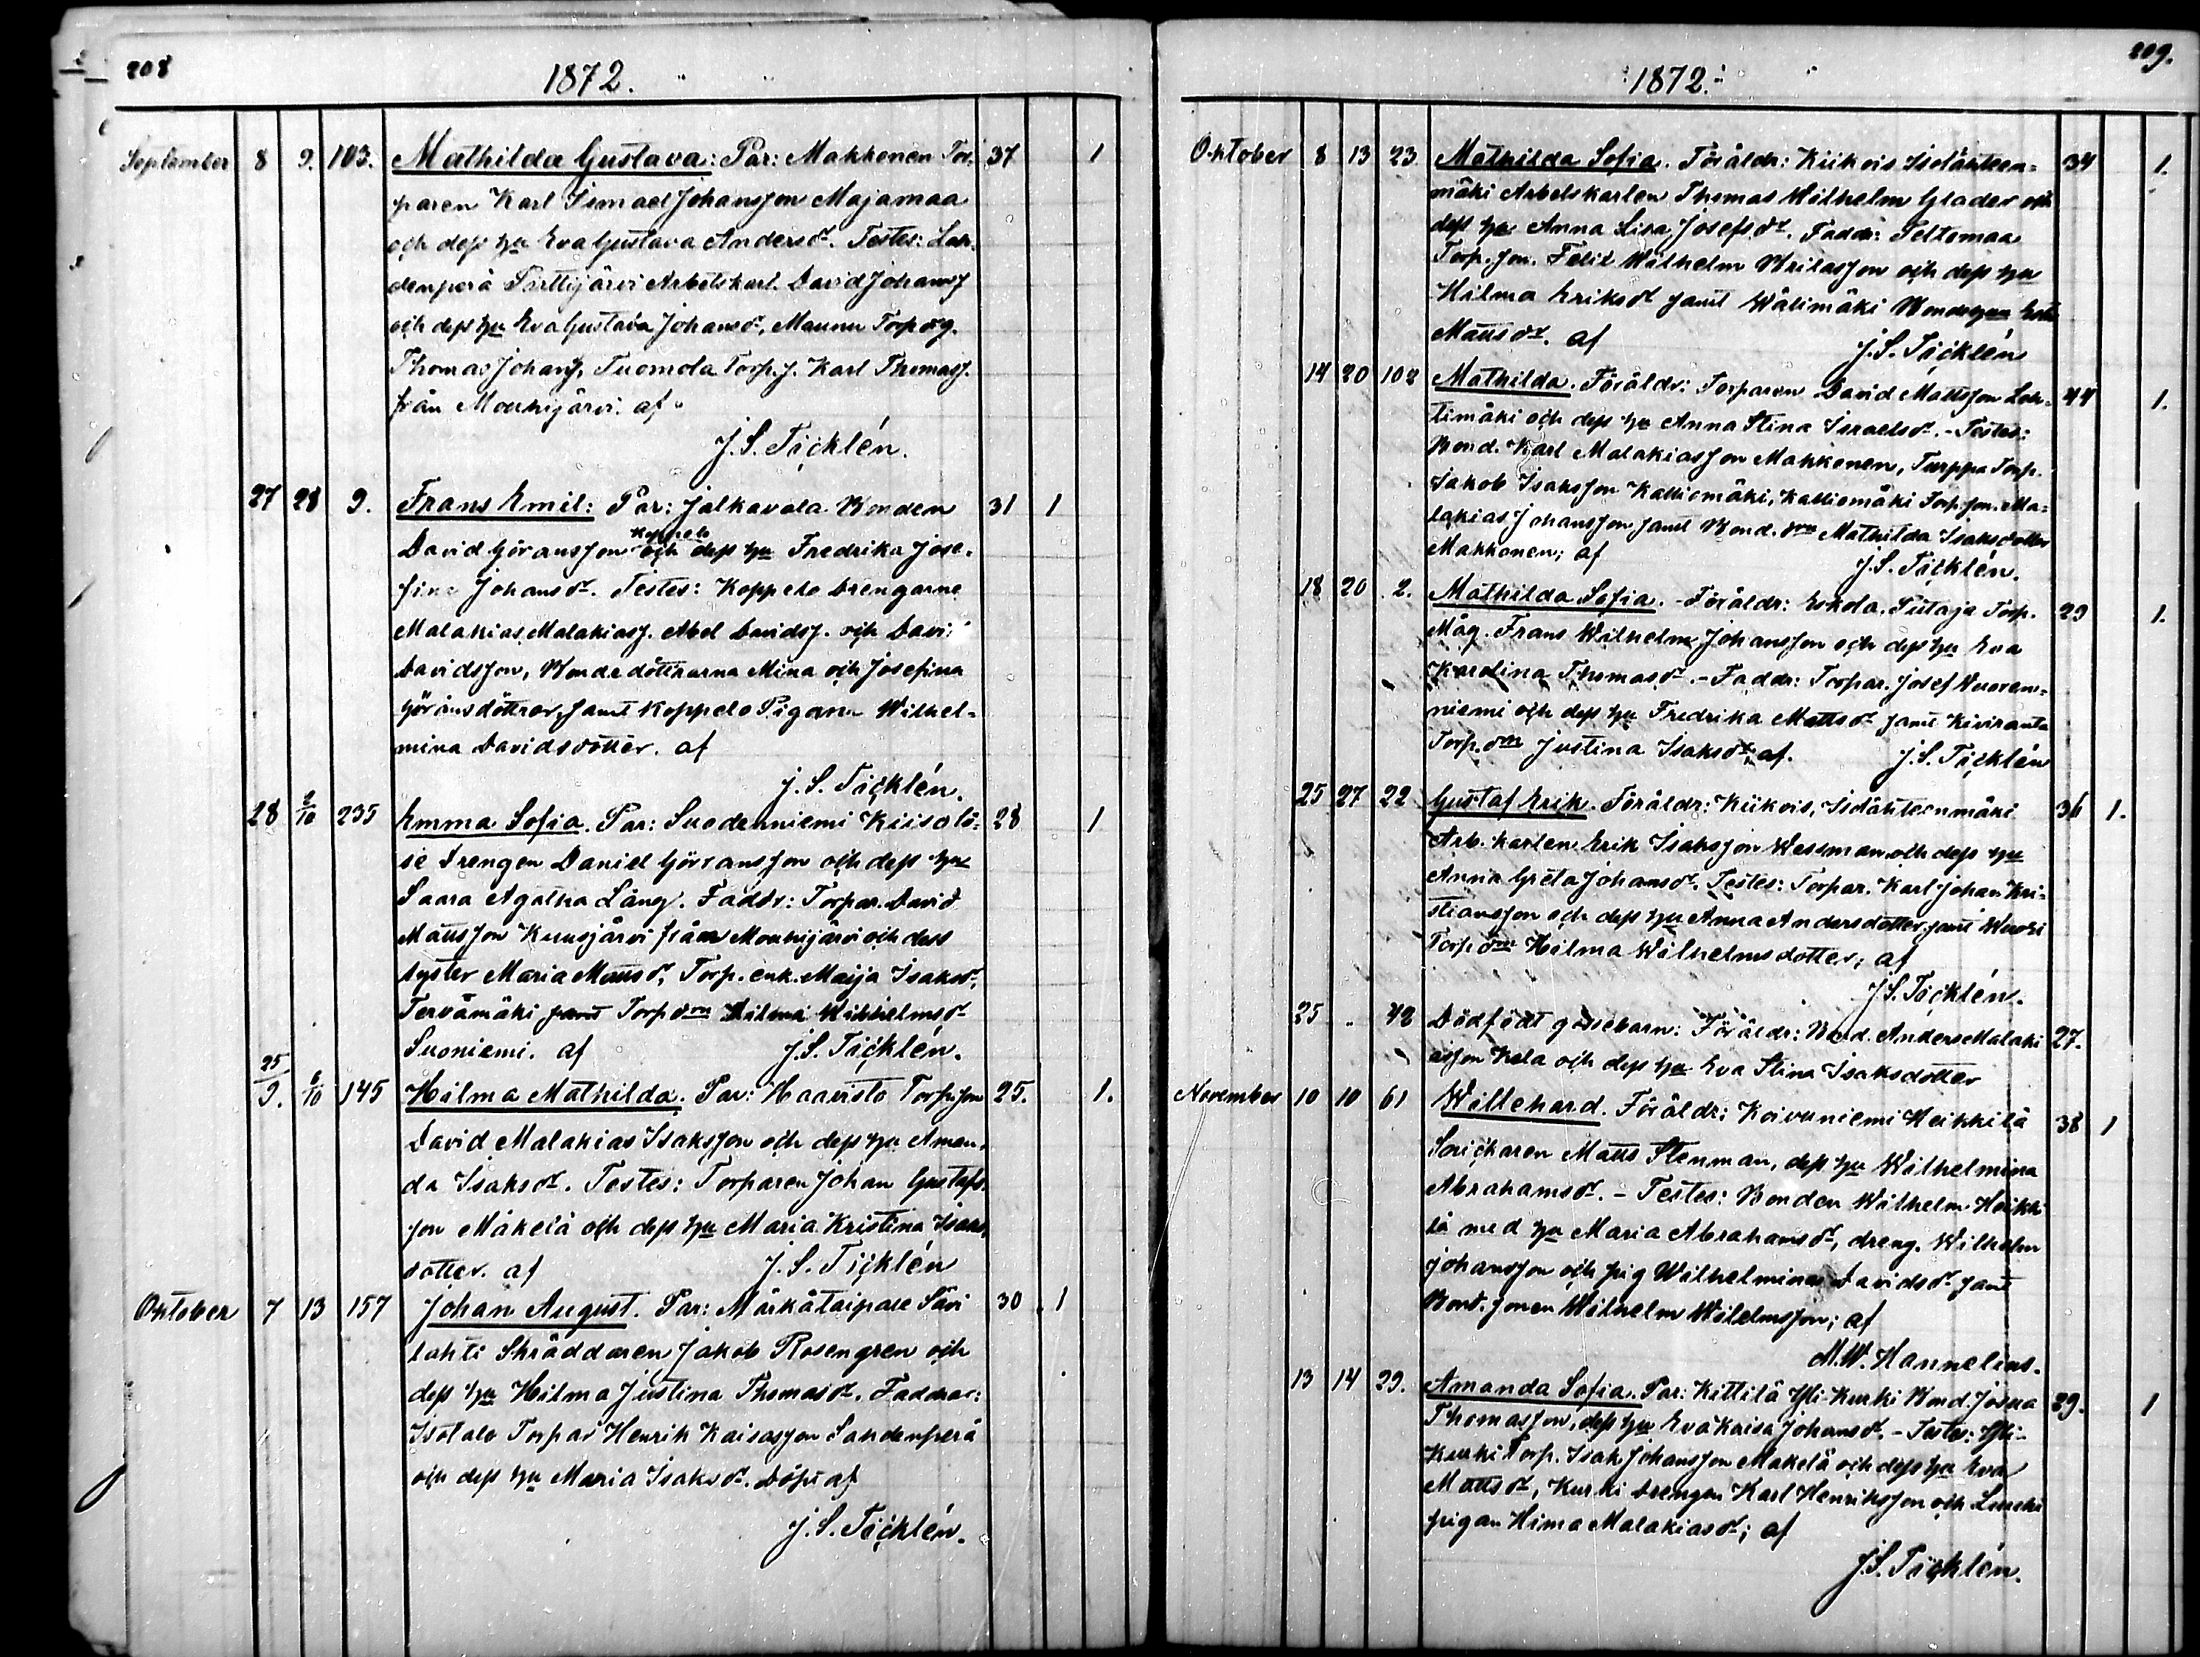 208
1872.
September 8 9. 103. Mathilda Gustava: Par: Makkonen Tor- 37 1
paren Karl Ismael Johansson Majamaa
och dess hu Eva Gustava Andersdr. Testes: Lah-
denperä Pirttijärvi Arbetskarl. David Johanss
och dess hu Eva Gustava Johansdr, Maunu Torp dg.
Thomas Johanss, Tuomola Torp.s. Karl Thomass.
från Mouhijärvi. af
J. S. Täcklén.
27 28 9. Frans Emil: Par: Jalkavala Bonden 31 1
Koppelo
David Göransson och dess hu Fredrika Jose-
fina Johansdr. Testes: Koppelo Drengarne
Malakias Malakiass. Abel Davidss. och Davi
Davidsson, Bondedöttrarna Mina och Josefina
Göransdöttrar, samt Koppelo Pigan Wilhel-
mina Davidsdotter. af
J. S. Täcklén.
28 2/10 235 Emma Sofia. Par: Suodenniemi Kiisolä- 28 1
se Drengen Daniel Göransson och dess hu
Saara Agatha Lång. Faddr: Torpar. David
Mattsson Kuusjärvi från Mouhijärvi och dess
syster Maria Mattsdr, Torp. enk. Maija Isaksdr,
Tervämäki samt Torp drn Hilma Wilhelmsdr
Suoniemi. af J. S. Täcklén.
25/9. 6/10 145 Hilma Mathilda. Par: Haavisto Torp.son 25. 1.
David Malakias Isaksson och dess hu Aman-
da Isaksdr. Testes: Torparen Johan Gustafs-
son Mäkelä och dess hu Maria Kristina Isaks-
dotter. af J. S. Täcklén
Oktober 7 13 157 Johan August. Par: Märkätaipale Savi 30 1
lahti Skräddaren Jakob Rosengren och
dess hu Hilma Justina Thomasdr. Faddrar:
Isotalo Torpar Henrik Kaisasson Sandenperä
och dess hu Maria Isaksdr. Döpt af
J. S. Täcklén.
209.
1872.
Oktober 8 13 23 Mathilda Sofia. Föräldr: Kiikois Isolähteen- 34 1.
mäki Arbetskarlen Thomas Wilhelm Glader och
dess hu Anna Lisa Josefsdr. Faddr: Peltomaa
Torp.son. Felix Wilhelm Kritasson och dess hu
Hilma Eriksdr samt Wälimäki Bonde
Mattsdr. af J. S. Täcklén
14 20 102 Mathilda. Föräldr: Torparen David Mattsson Lah- 44 1.
timäki och dess hu Anna Stina Israelsdr. - Testes:
Bond. Karl Malakiasson Makkonen, Turppa Torp.
Jakob Isaksson Kalliomäki, Kalliomäki Torp.son. Ma-
lakias Johansson samt Bond. drn Mathilda Isaksdotter
Makkonen; af J. S. Täcklén.
18 20 2. Mathilda Sofia. - Föräldr: Eskola. Pietaja Torp. 29 1.
Måg. Frans Wilhelm Johansson och dess hu Eva
Karolina Thomasdr. - Faddr: Torpar. Josef Vuoren-
niemi och dess hu Fredrika Mattsdr samt Kiviranta
Torp. drn Justina Isaksdr; af. J. S. Täcklén
25 27 22 Gustaf Erik. Föräldr: Kiikois, Isolähteenmäki 36 1.
Arb. karlen Erik Isaksson Westman och dess hu
Anna Greta Johansdr. Testes: Torpar. Karl Johan Kri-
stiansson och dess hu Anna Andersdotter, samt Wuori
Torp drn Hilma Wilhelmsdotter; af
J. S. Täcklén.
25 . 42 Dödfödt gossebarn: Föräldr: Bond. Anders Malaki 27.
asson Kela och dess hu Eva Stina Isaksdotter
November 10 10 61 Willehard. Föräldr: Koivuniemi Heikkilä 38 1
Snickaren Matts Stenman, dess hu Wilhelmina
Abrahamsdr. - Testes: Bonden Wilhelm Heikki-
lä med hu Maria Abrahamsdr, dreng. Wilhelm
Johansson och pig Wilhelmina Davidsdr samt
Bond. sonen Wilhelm Wilhelmsson; af
M. W. Hannelius.
13 14 29. Amanda Sofia. Par: Kittilä Yli-Kurki Bond. Josua 29. 1
Thomasson, dess hu Eva Kaisa Johansdr. - Testes: Yli-
Kurki Torp. Isak Johansson Mäkelä och dess hu Eva
Mattsdr, Kurki Drengen Karl Henriksson och
pigan Hima Malakiasdr; af
J. S. Täcklén.